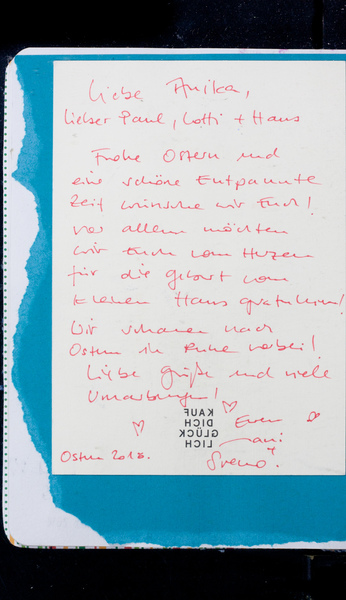 Liebe Anika,
lieber Paul, Lotti + Hans
Frohe Ostern und
eine schöne Entspannte
Zeit wünschen wir Euch!
vor allem möchten
wir Euch vom Herzen
für die geburt vom
kleinen Hans gratulieren!
Wir schauen nach
Ostern in Ruhe vorbei!
Liebe Grüße und viele
Umarmungen!
KAUF
DICH
GLÜCK
LICH
Eure
Ostern